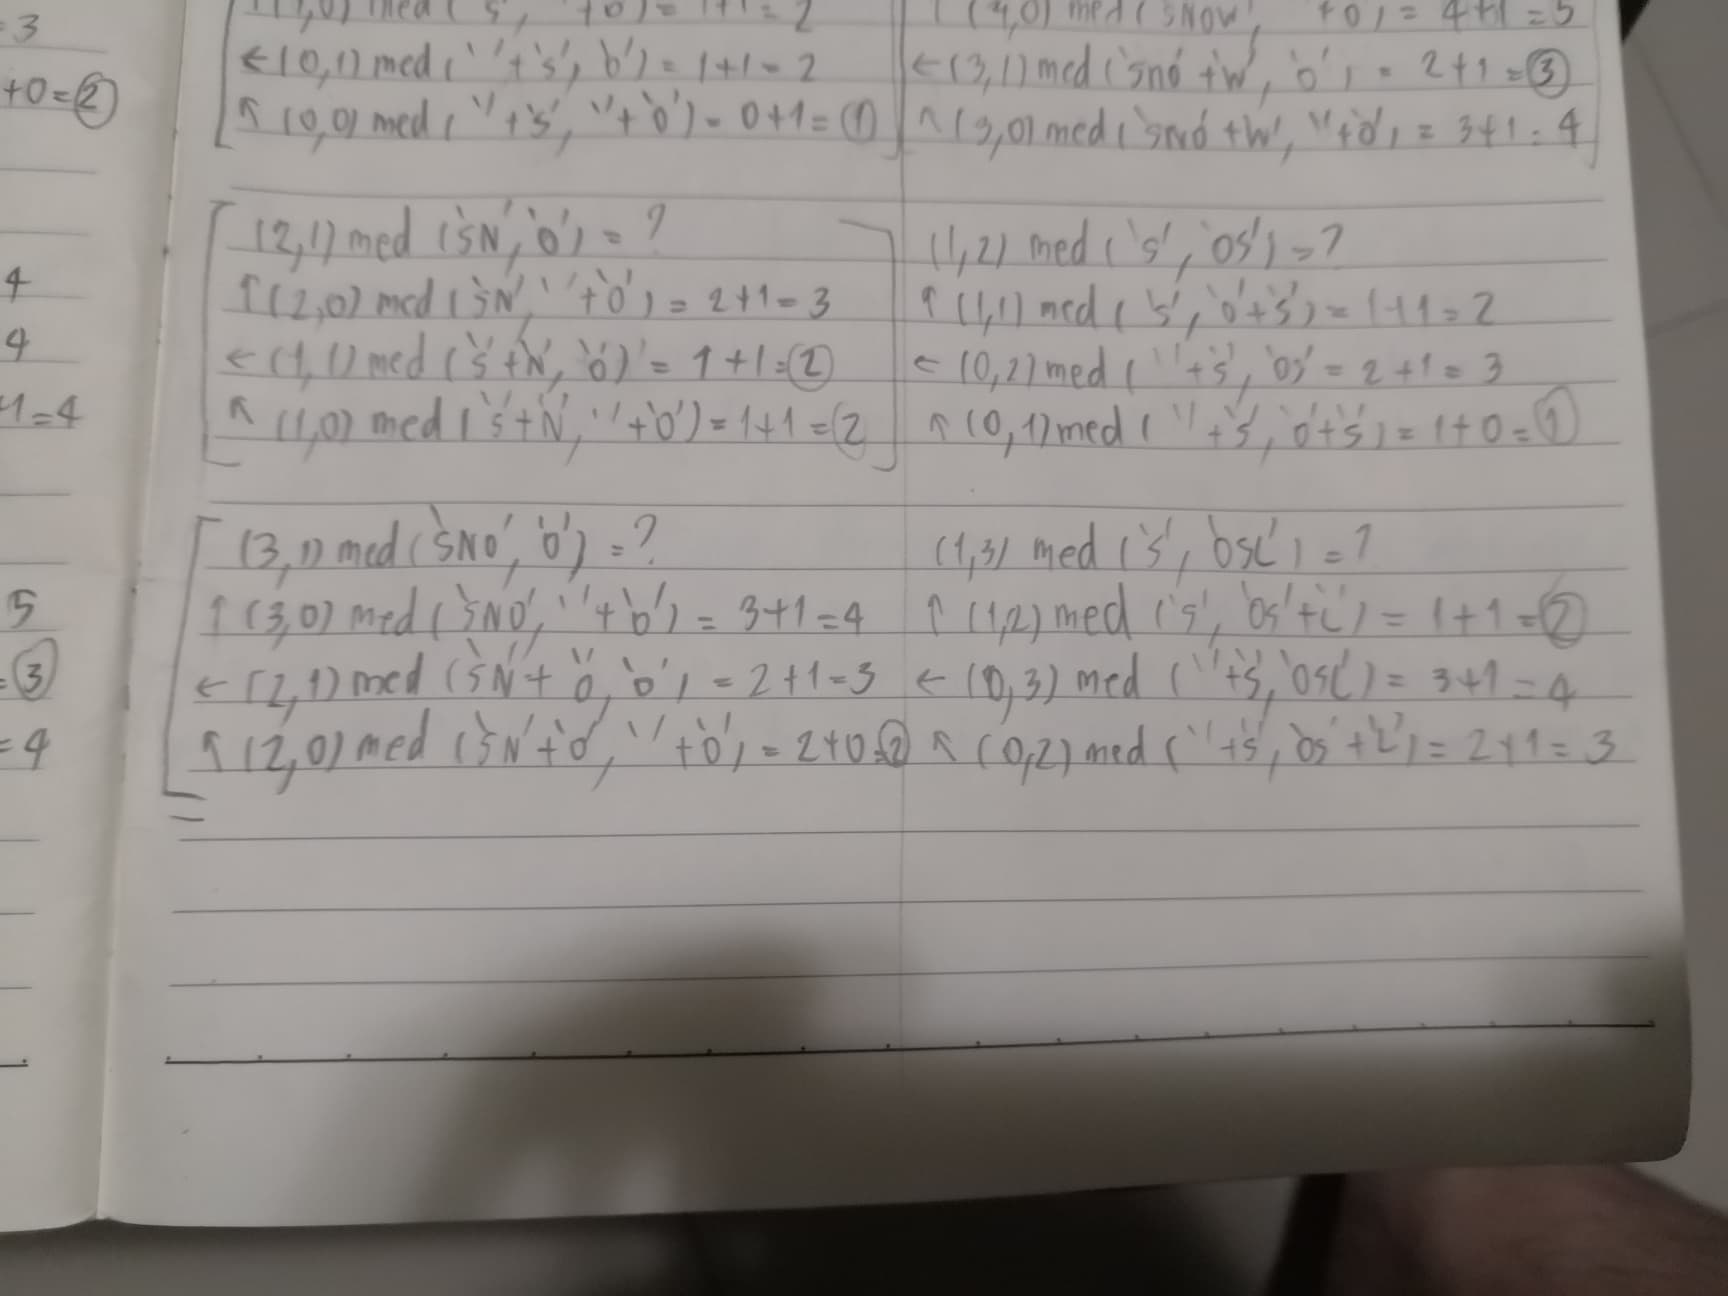 =3
+0=2
4
4
+1=4
5
=3
=4
(1,0) med ('s', ''+'o') = 1+1=2
←(0,1) med (''+'s', 'o') = 1+1=2
↖ (0,0) med (''+'s', ''+'o') = 0+1=1
(2,1) med ('SN', 'O') = ?
↑ (2,0) med ('SN', ''+'O') = 2+1=3
← (1,1) med ('S'+'N', 'O') = 1+1=2
↖ (1,0) med ('S'+'N', ''+'O') = 1+1=2
(3,1) med ('SNO', 'O') = ?
↑ (3,0) med ('SNO', ''+'O') = 3+1=4
← (2,1) med ('SN'+'O', 'O') = 2+1=3
↖ (2,0) med ('SN'+'O', ''+'O') = 2+0=2
↑ (4,0) med ('SNOW', ''+'O') = 4+1=5
← (3,1) med ('SNO'+'W', 'O') = 2+1=3
↖ (3,0) med ('SNO'+'W', ''+'O') = 3+1=4
(1,2) med ('S', 'OS') = ?
↑ (1,1) med ('S', 'O'+'S') = 1+1=2
← (0,2) med (''+'S', 'OS' = 2+1=3
↖ (0,1) med (''+'S', 'O'+'S') = 1+0=1
(1,3) med ('S', 'OSL') = ?
↑ (1,2) med ('S', 'OS'+'L') = 1+1=2
← (0,3) med (''+'S', 'OSL') = 3+1=4
↖ (0,2) med (''+'S', 'OS'+'L') = 2+1=3